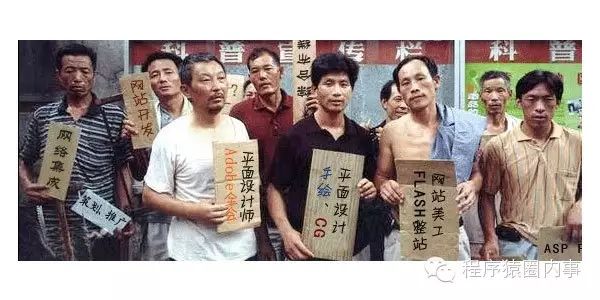 科普宣传栏
科普
网站开发
综合布线
网络集成
策划、推广
平面设计师
Adobe
平面设计
手绘、CG
网站美工
FLASH整站
ASP
程序猿圈内事